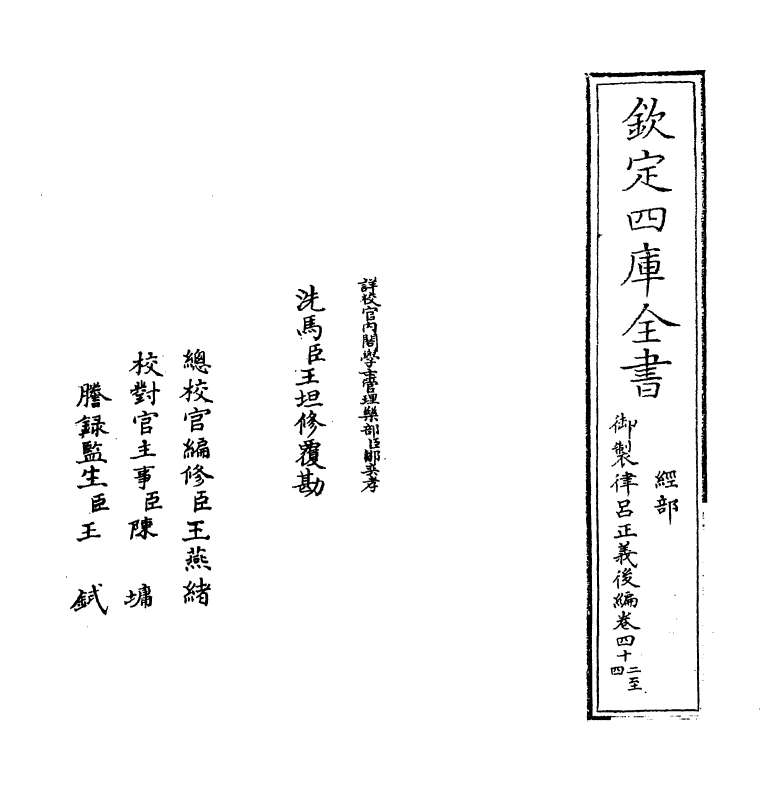 欽定四庫全書
經部
御製律呂正義後編卷四十二至四
詳校官內閣學士管理樂部臣鄒奕孝
洗馬臣王坦修覆勘
總校官編修臣王燕緒
校對官主事臣陳墉
謄録監生臣王鉽